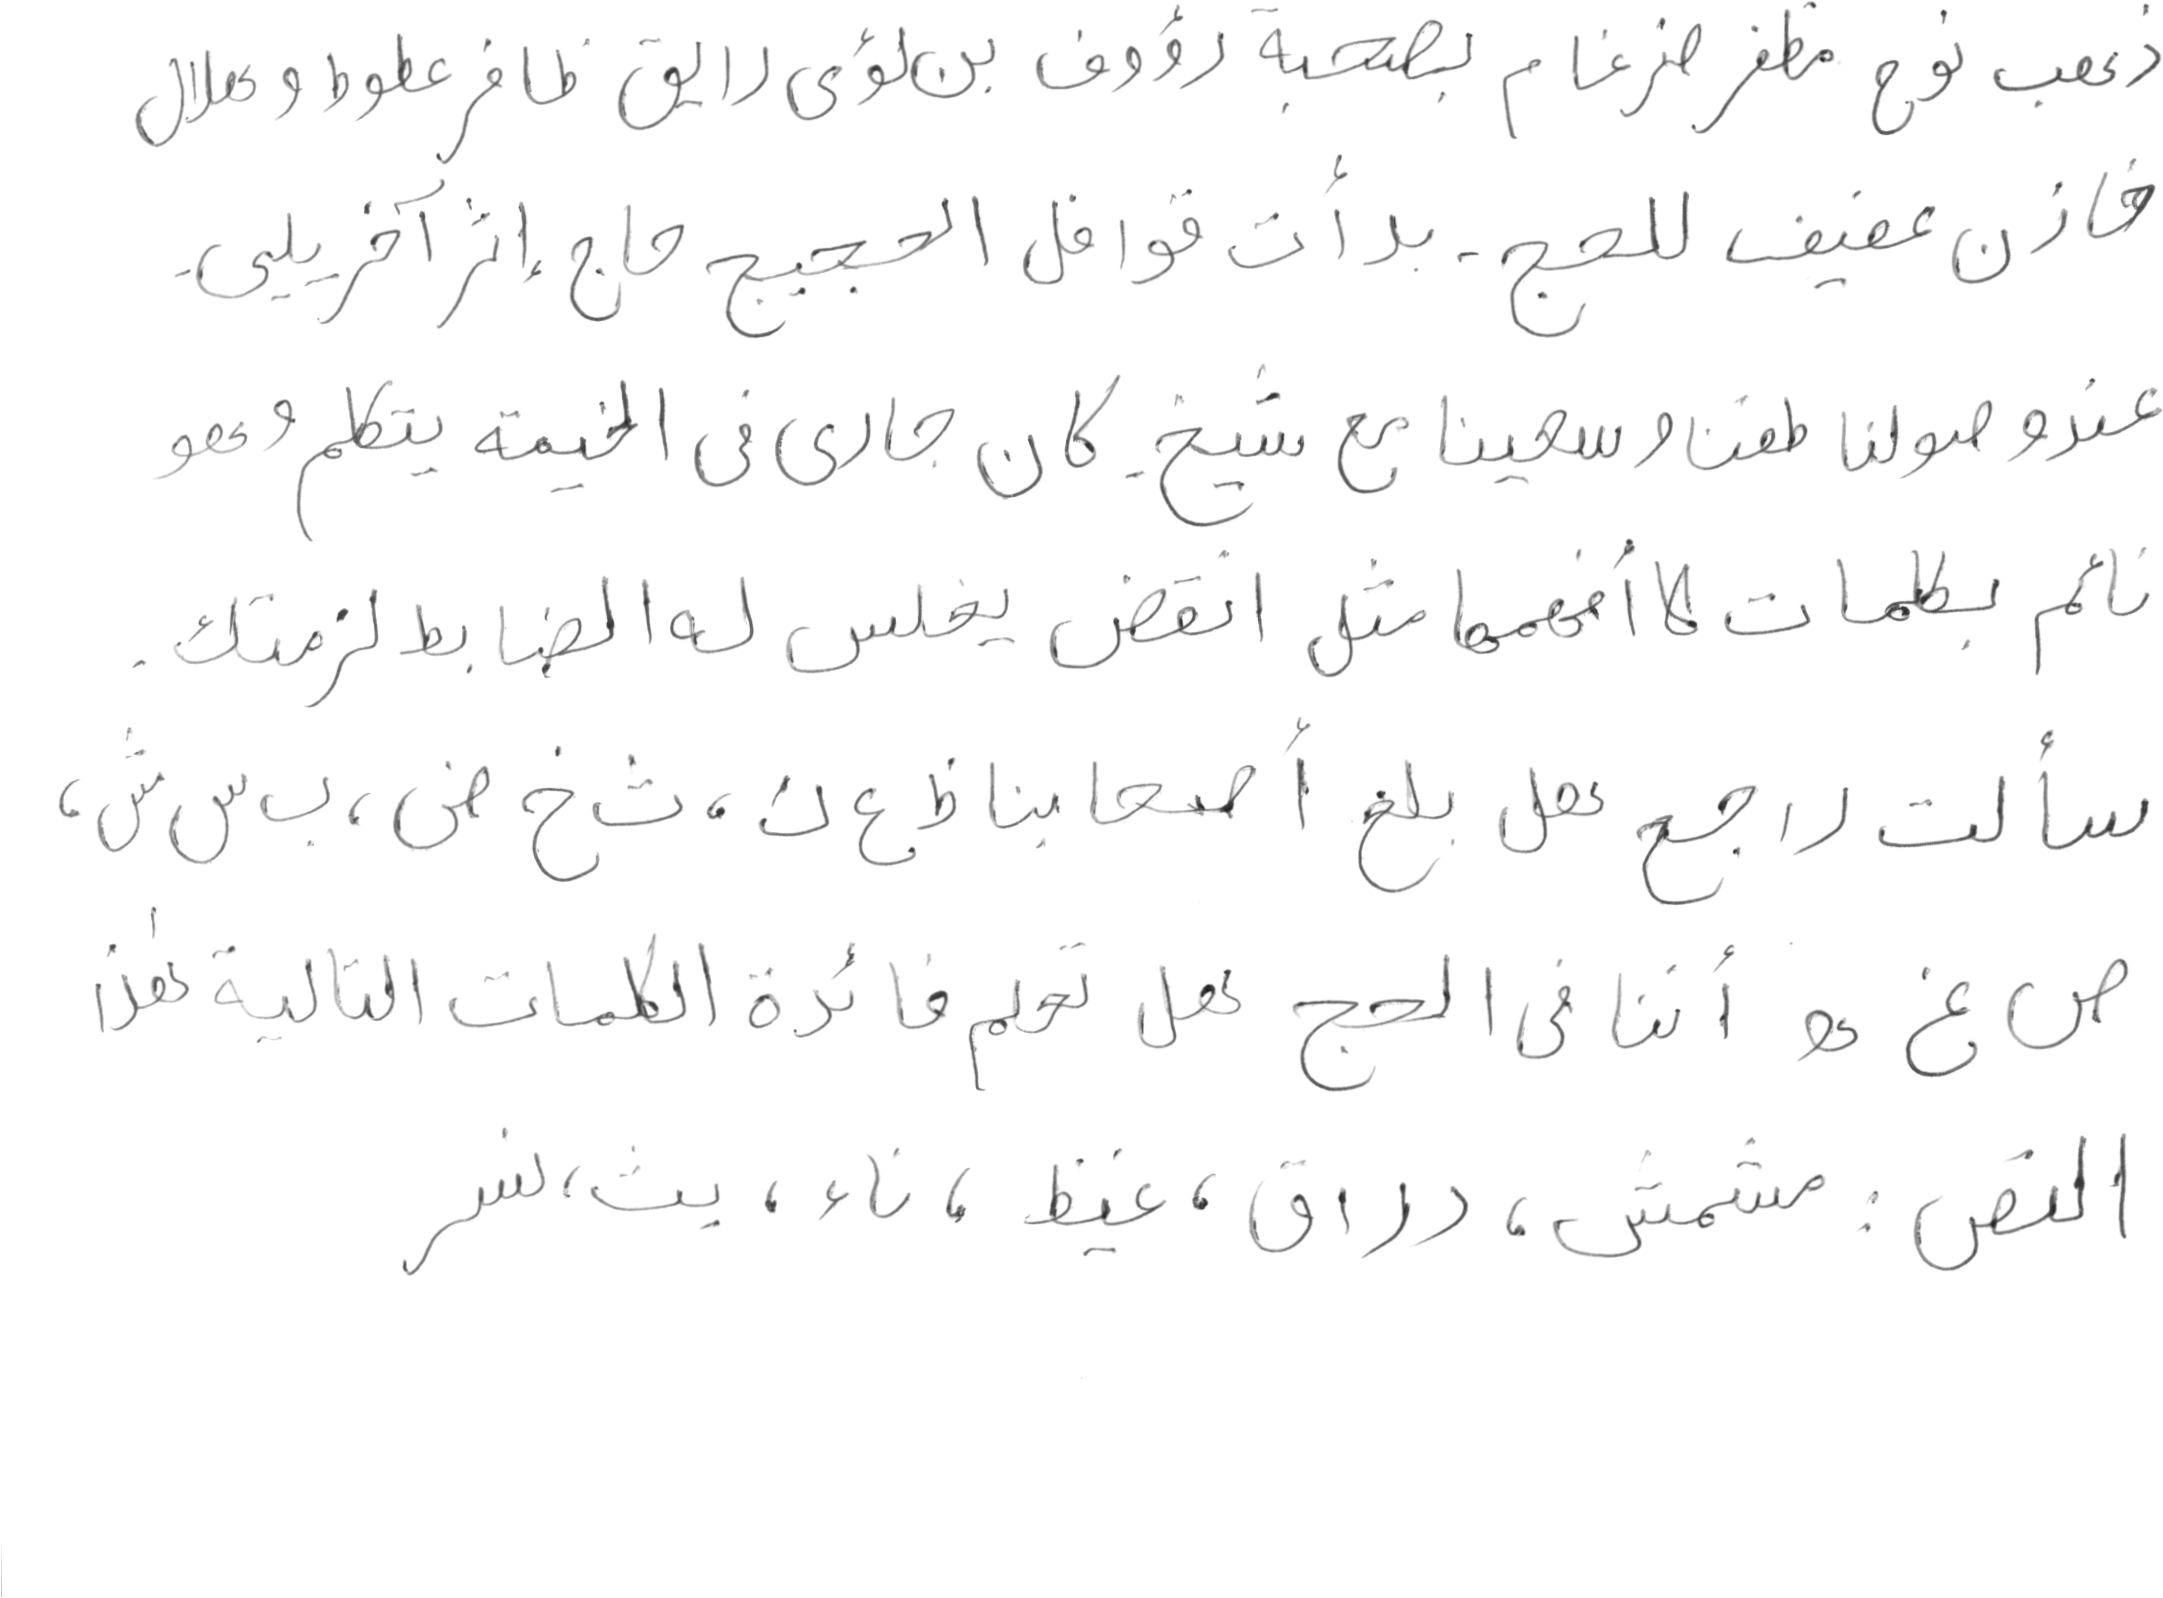 ذهب نوح مظفر ضرغام بصحبة رؤوف بن لؤى رايق ظافر عطوط و هلال
خازن عفيف للحج . بدأت قوافل الحجيج حاج إثر آخر يلبى .
عند وصولنا طفنا وسعينا مع شيخ . كان جارى فى الخيمة يتكلم وهو
نائم بكلمات لا أفهمها مثل انقض يغلس له الضابط لزمتك .
سألت راجع هل بلغ أصحابنا ظ ع ك ، ث خ ض ، ب س ش ،
ص غ ه أننا فى الحج هل تعلم فائدة الكلمات التالية هذا
النص : مشمش ، دراق ، غيظ ، ناء ، يث ، نسر